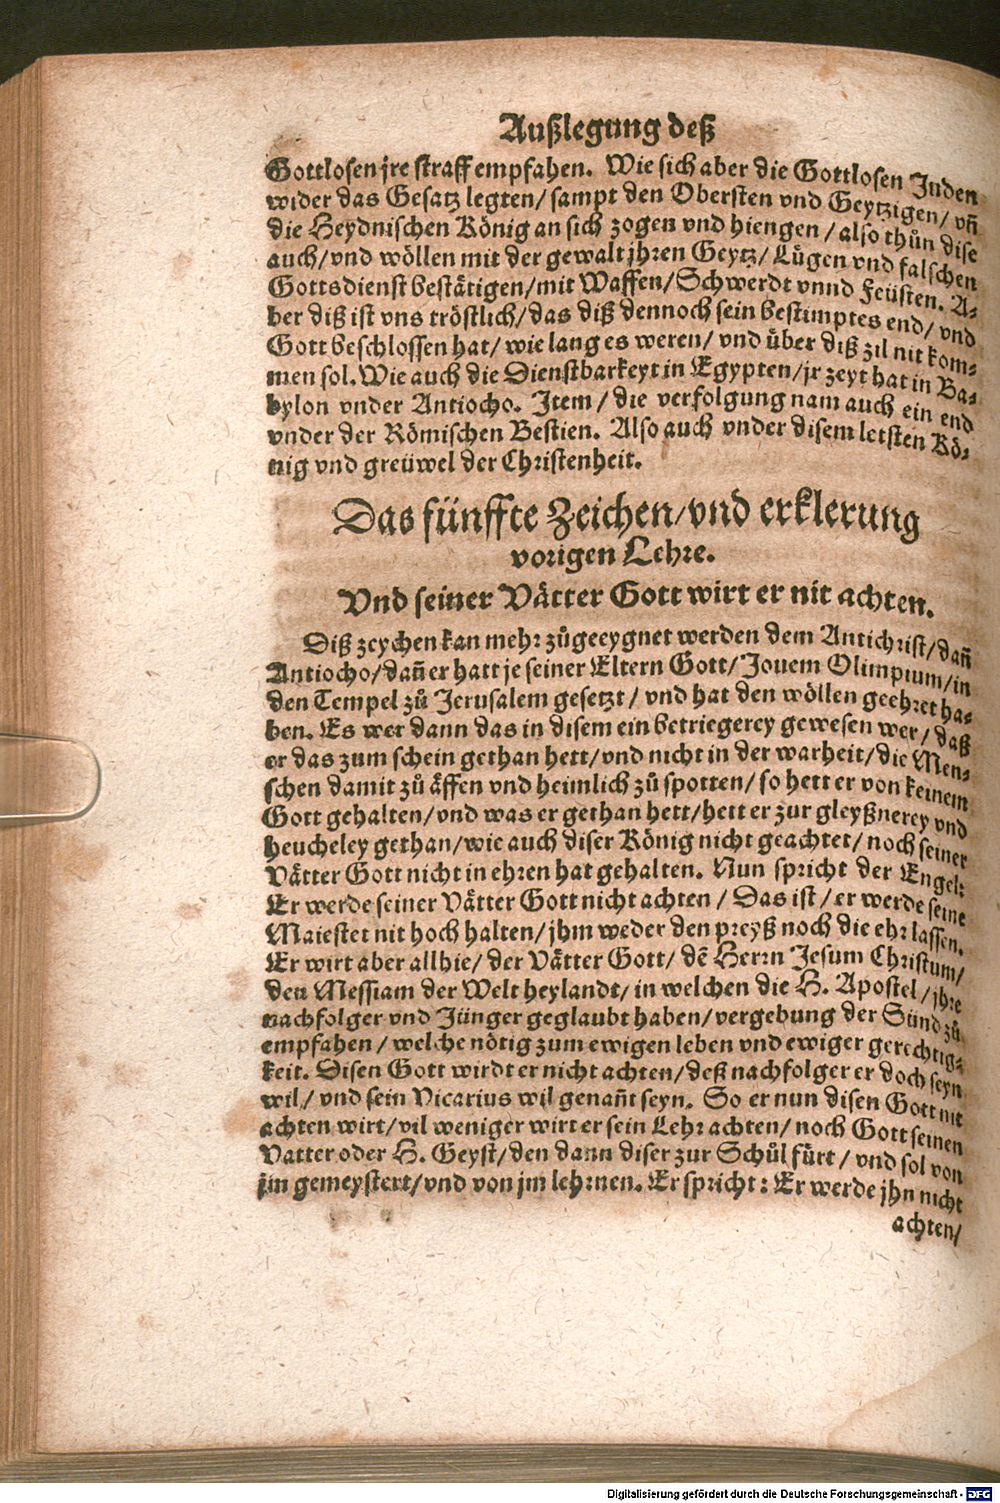 Außlegung deß
Gottlosen jre straff empfahen. Wie sich aber die Gottlosen Juden
wider das Gesatz legten/ sampt den Obersten vnd Geytzigen/ vñ
die Heydnischen König an sich zogen vnd hiengen / also thůn dise
auch/ vnd wöllen mit der gewalt jhren Geytz/ Lügen vnd falschen
Gottsdienst bestätigen/ mit Waffen/ Schwerdt vnnd Feüsten. A-
ber diß ist vns tröstlich/ das diß dennoch sein bestimptes end/ vnd
Gott beschlossen hat/ wie lang es weren/ vnd über diß zil nit kom-
men sol. Wie auch die Dienstbarkeyt in Egypten/ jr zeyt hat in Ba-
bylon vnder Antiocho. Item / die verfolgung nam auch ein end
vnder der Römischen Bestien. Also auch vnder disem letsten Kö-
nig vnd greüwel der Christenheit.
Das fünffte Zeichen/ vnd erklerung
vorigen Lehre.
Vnd seiner Vätter Gott wirt er nit achten.
Diß zeychen kan mehr zůgeeygnet werden dem Antichrist/ dañ
Antiocho/ dañ er hatt je seiner Eltern Gott/ Jouem Olimpium/ in
den Tempel zů Jerusalem gesetzt / vnd hat den wöllen geehret ha-
ben. Es wer dann das in disem ein betriegerey gewesen wer/ daß
er das zum schein gethan hett/ vnd nicht in der warheit/ die Men-
schen damit zů äffen vnd heimlich zů spotten/ so hett er von keinem
Gott gehalten/ vnd was er gethan hett/ hett er zur gleyßnerey vnd
heucheley gethan/ wie auch diser König nicht geachtet/ noch seiner
Vätter Gott nicht in ehren hat gehalten. Nun spricht der Engel:
Er werde seiner Vätter Gott nicht achten / Das ist / er werde seine
Maiestet nit hoch halten/ jhm weder den preyß noch die ehr lassen.
Er wirt aber allhie/ der Vätter Gott/ dẽ Herrn Jesum Christum/
den Messiam der Welt heylandt/ in welchen die H. Apostel / jhre
nachfolger vnd Jünger geglaubt haben/ vergebung der Sünd zů
empfahen / welche nötig zum ewigen leben vnd ewiger gerechtig-
keit. Disen Gott wirdt er nicht achten/ deß nachfolger er doch seyn
wil/ vnd sein Vicarius wil genañt seyn. So er nun disen Gott nit
achten wirt/ vil weniger wirt er sein Lehr achten/ noch Gott seinen
Vatter oder H. Geyst/ den dann diser zur Schůl fürt / vnd sol von
jm gemeystert/ vnd von jm lehrnen. Er spricht: Er werde jhn nicht
achten/
Digitalisierung gefördert durch die Deutsche Forschungsgemeinschaft - DFG